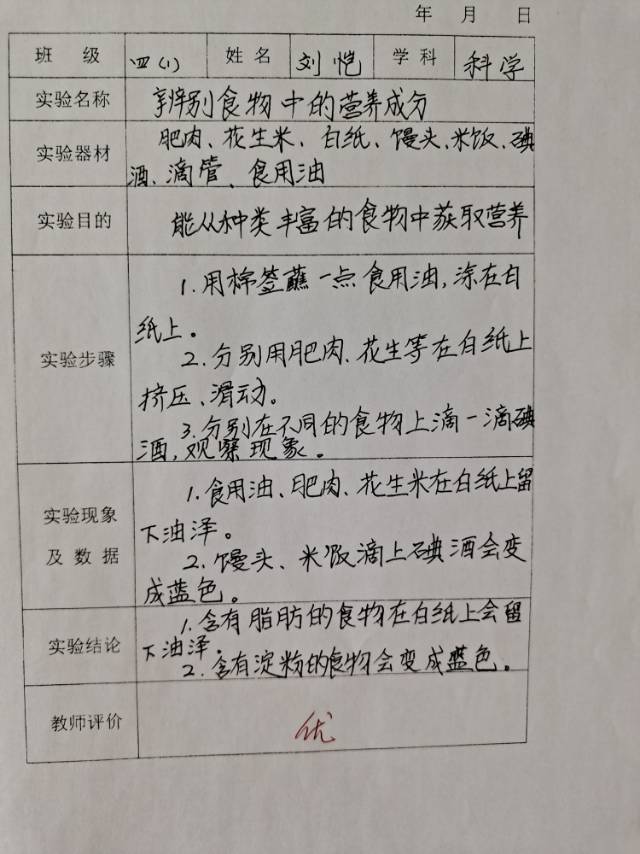 年 月 日
班 级 四(1) 姓名 刘恺 学科 科学
实验名称 辨别食物中的营养成分
实验器材 肥肉、花生米、白纸、馒头、米饭、碘
酒、滴管、食用油
实验目的 能从种类丰富的食物中获取营养
实验步骤 1.用棉签蘸一点食用油,涂在白
纸上。
2.分别用肥肉、花生等在白纸上
挤压、滑动。
3.分别在不同的食物上滴一滴碘
酒,观察现象。
实验现象
及 数 据
1.食用油、肥肉、花生米在白纸上留
下油泽。
2.馒头、米饭滴上碘酒会变
成蓝色。
实验结论 1.含有脂肪的食物在白纸上会留
下油泽。
2.含有淀粉的食物会变成蓝色。
教师评价 优